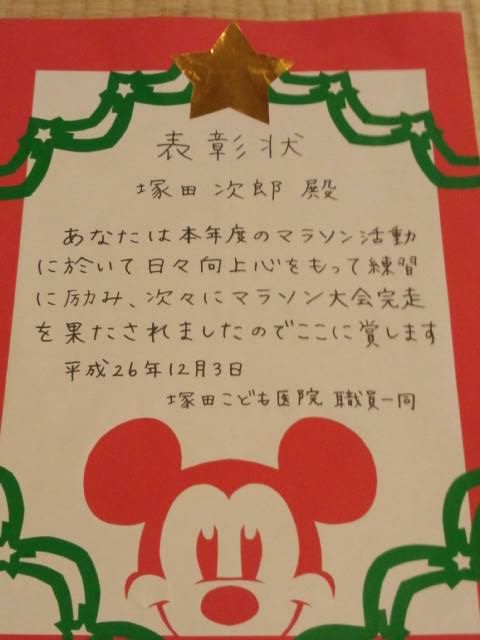 表彰状
塚田次郎 殿
あなたは本年度のマラソン活動
に於いて日々向上心をもって練習
に励み、次々にマラソン大会完走
を果たされましたのでここに賞します
平成26年12月3日
塚田こども医院 職員一同